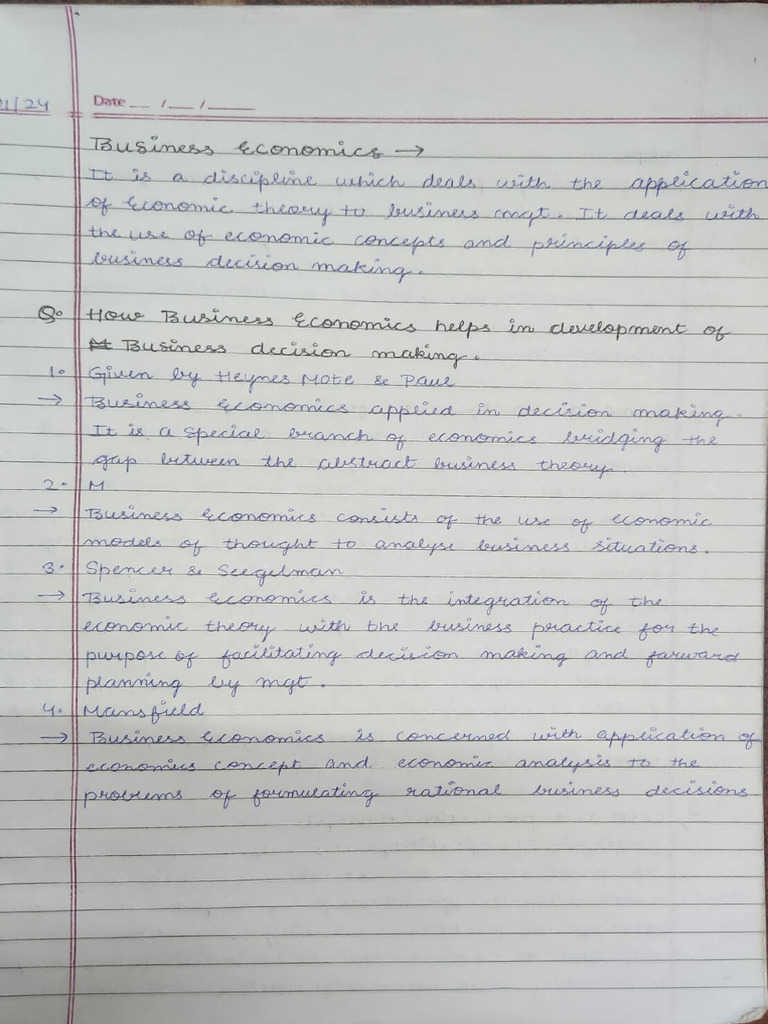 1/24
Date __ /__ /____
Business Economics →
It is a discipline which deals with the application
of Economic theory to business mgt. It deals with
the use of economic concepts and principles of
business decision making.
Q. How Business Economics helps in development of
Business decision making.
1. Given by Heynes Mote & Paul
→ Business Economics applied in decision making.
It is a special branch of economics bridging the
gap between the abstract business theory.
2. M
→ Business Economics consists of the use of economic
models of thought to analyse business situations.
3. Spencer & Seegelman
→ Business Economics is the integration of the
economic theory with the business practice for the
purpose of facilitating decision making and farward
planning by mgt.
4. Mansfield
→ Business Economics is concerned with application of
economics concept and economic analysis to the
problems of formulating rational business decisions